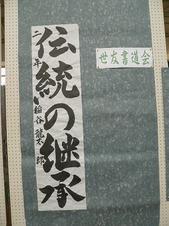 伝統の継承
二年 稲谷龍太郎
世友書道会